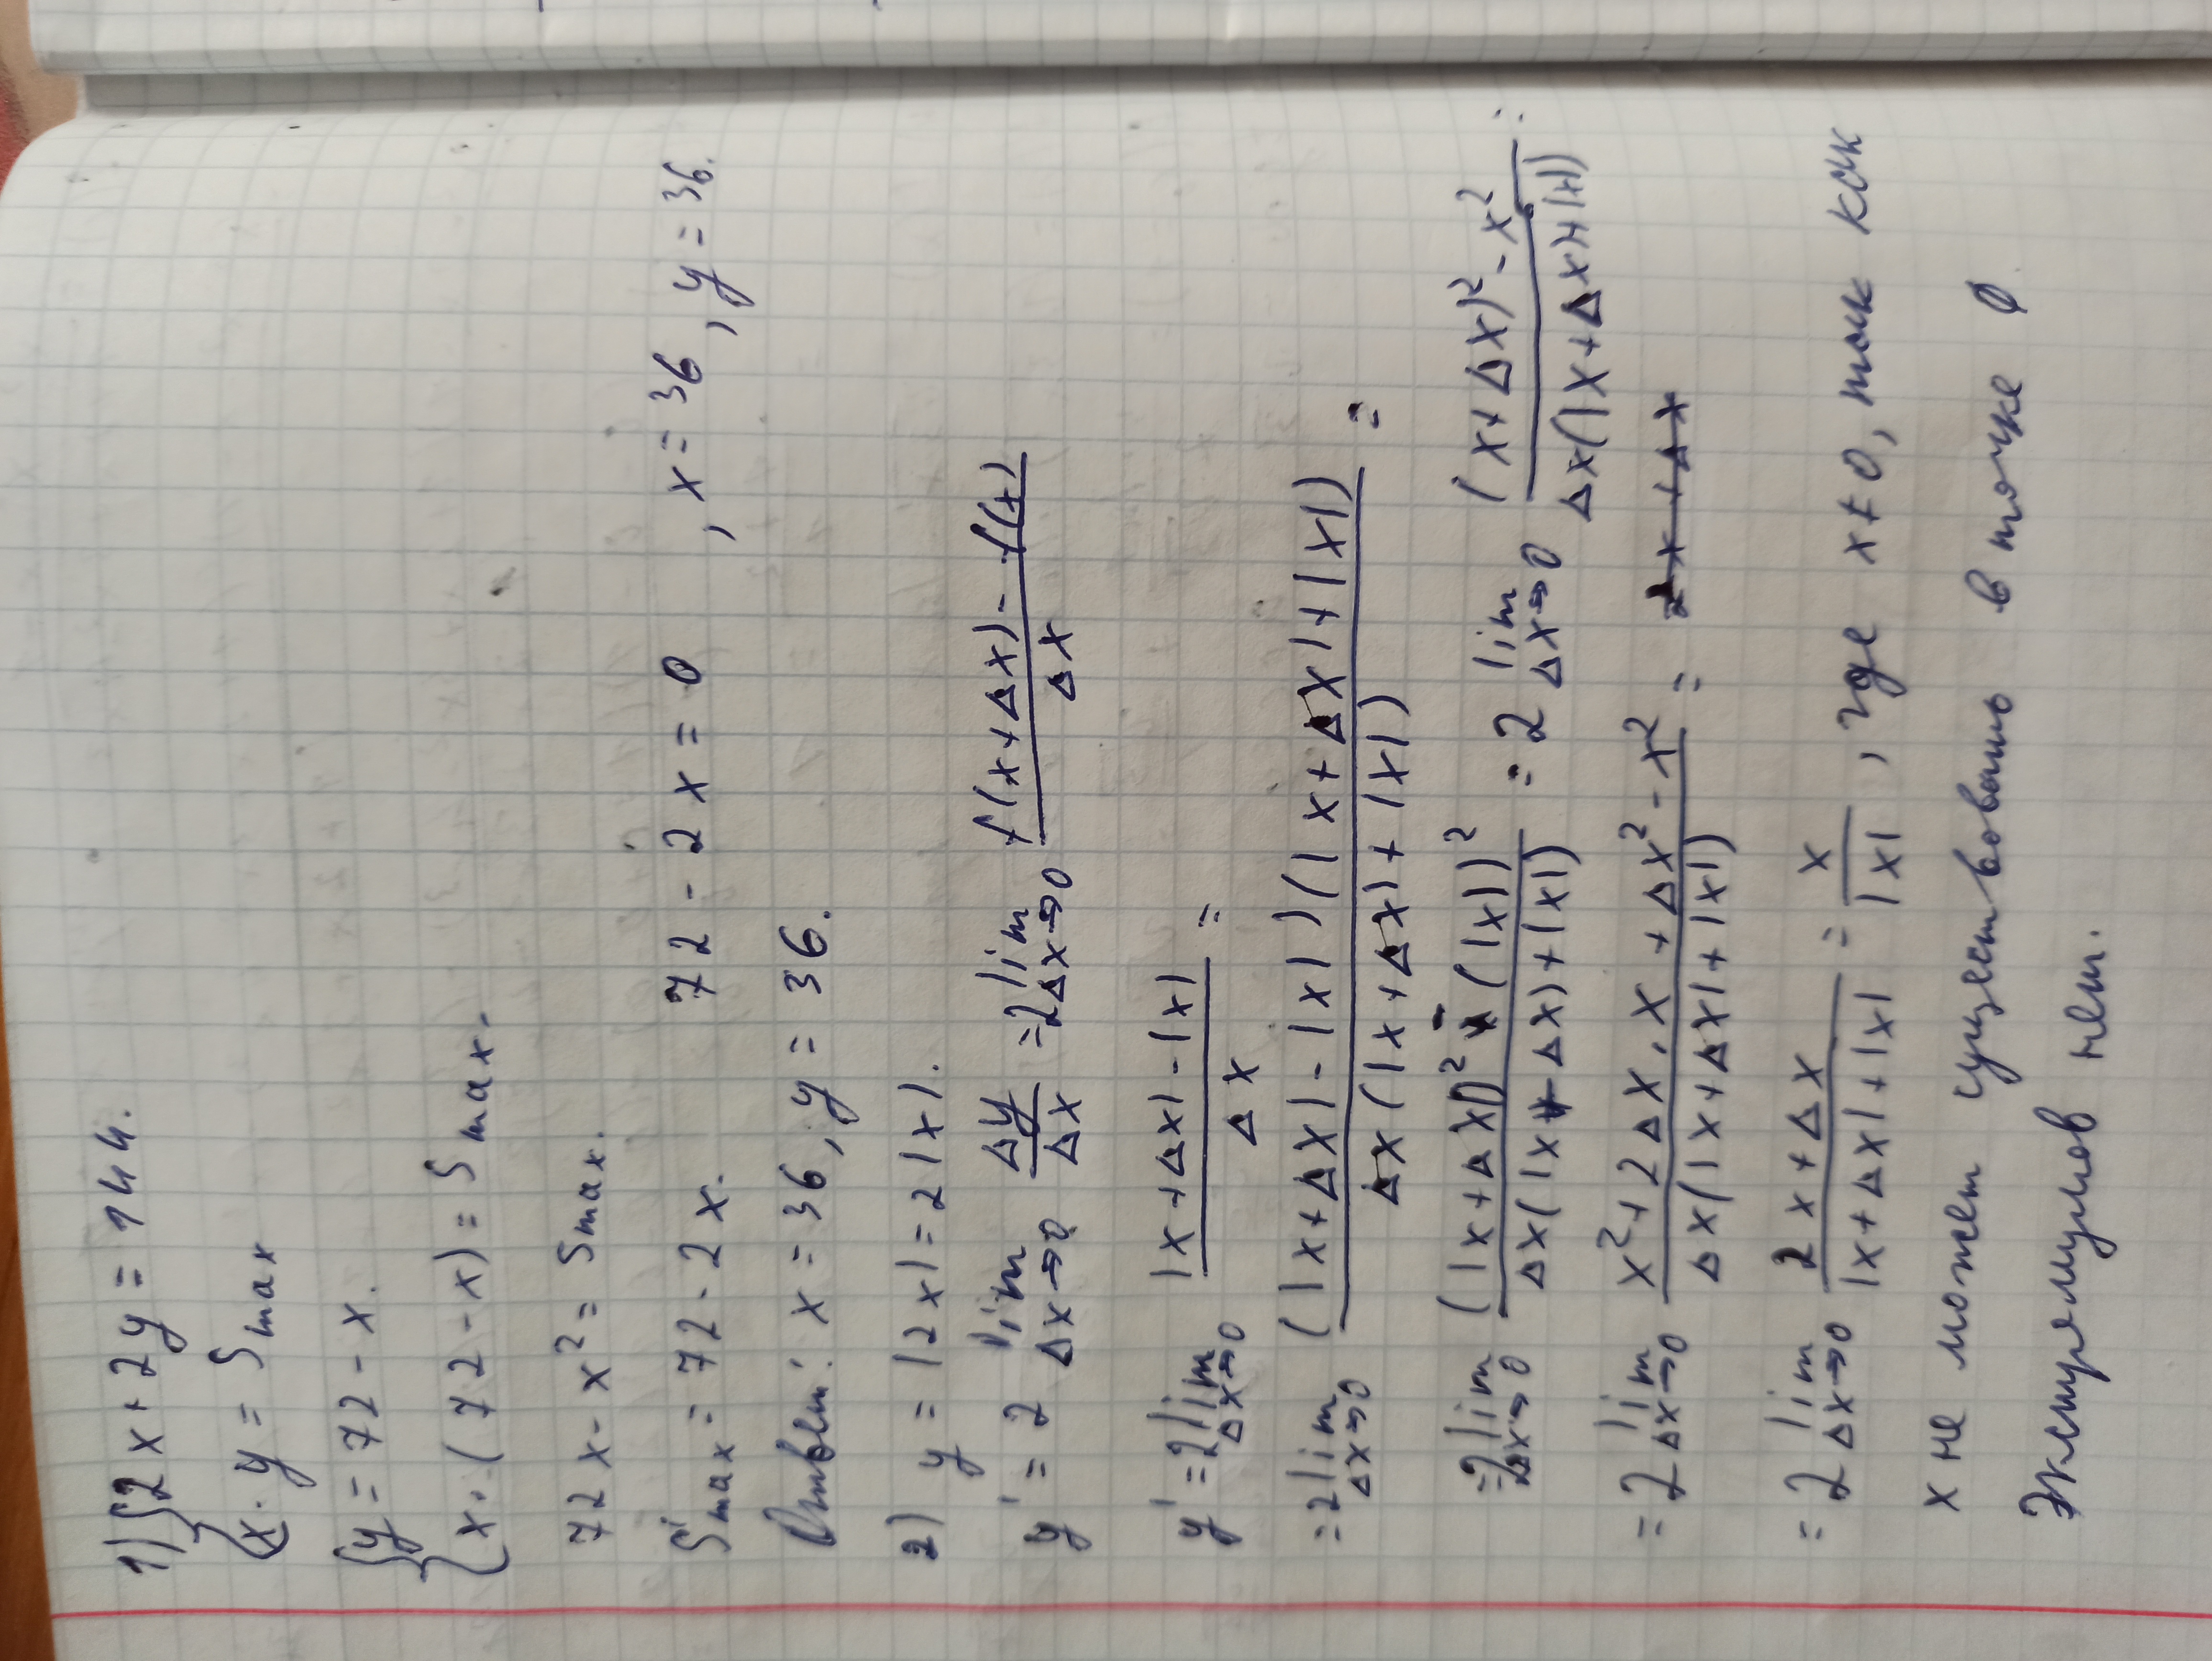 1) { 2x + 2y = 144.
{ x · y = Smax
{ y = 72 - x.
{ x · (72 - x) = Smax.
72x - x² = Smax.
S'max = 72 - 2x. 72 - 2x = 0 , x = 36 , y = 36.
Ответ: x = 36, y = 36.
2) y = |2x| = 2|x|.
y' = 2 lim Δx→0 Δy/Δx = 2 lim Δx→0 (f(x+Δx) - f(x))/Δx
y' = 2 lim Δx→0 (|x+Δx| - |x|)/Δx =
= 2 lim Δx→0 ((|x+Δx| - |x|)(|x+Δx| + |x|))/(Δx(|x+Δx) + |x|)) =
= 2 lim Δx→0 ((|x+Δx|)² - (|x|)²)/(Δx(|x+Δx) + |x|)) = 2 lim Δx→0 ((x+Δx)² - x²)/(Δx(|x+Δx|+|x|)) =
= 2 lim Δx→0 (x² + 2Δx · x + Δx² - x²)/(Δx(|x+Δx| + |x|)) = 2x + Δx
= 2 lim Δx→0 (2x + Δx)/(|x+Δx| + |x|) = x/|x| , где x ≠ 0, так как
x не может существовать в точке 0.
Экстремумов нет.